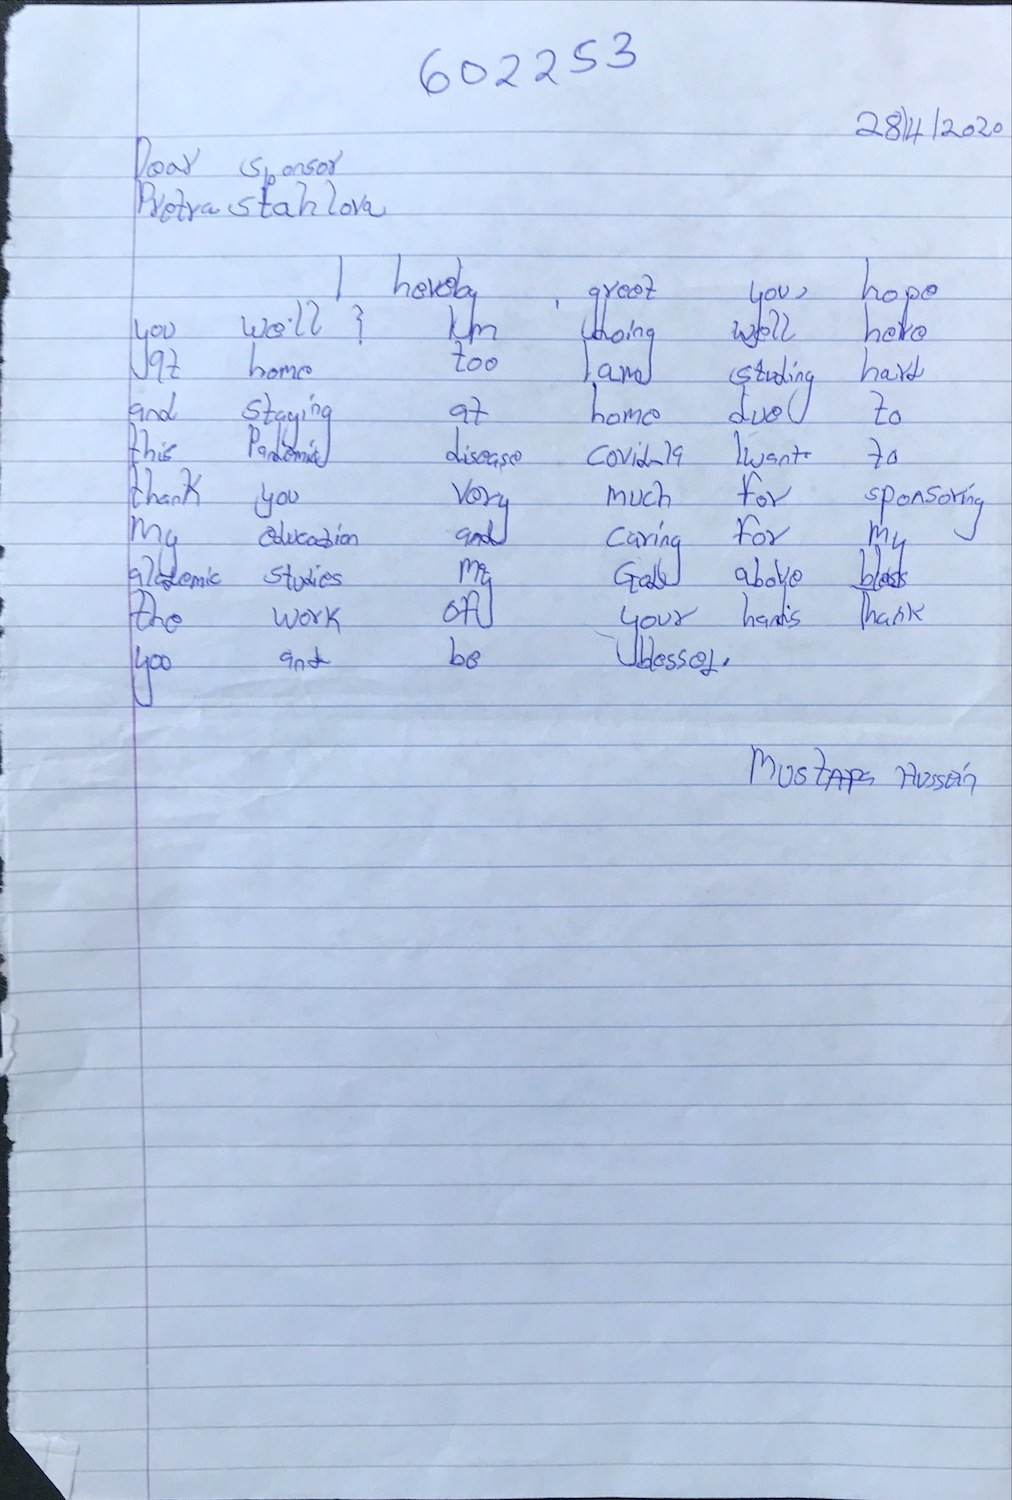 602253
28/4/2020
Dear sponsor
Pretra stahlova
I hereby greet you, hope
you well ? I'm doing well here
at home too I am studing hard
and staying at home due to
this Pandemic disease covid-19 I want to
thank you very much for sponsoring
My education and caring for my
academic studies my God above bless
the work of your hands Thank
you and be blessed.
Mustapa Hussein